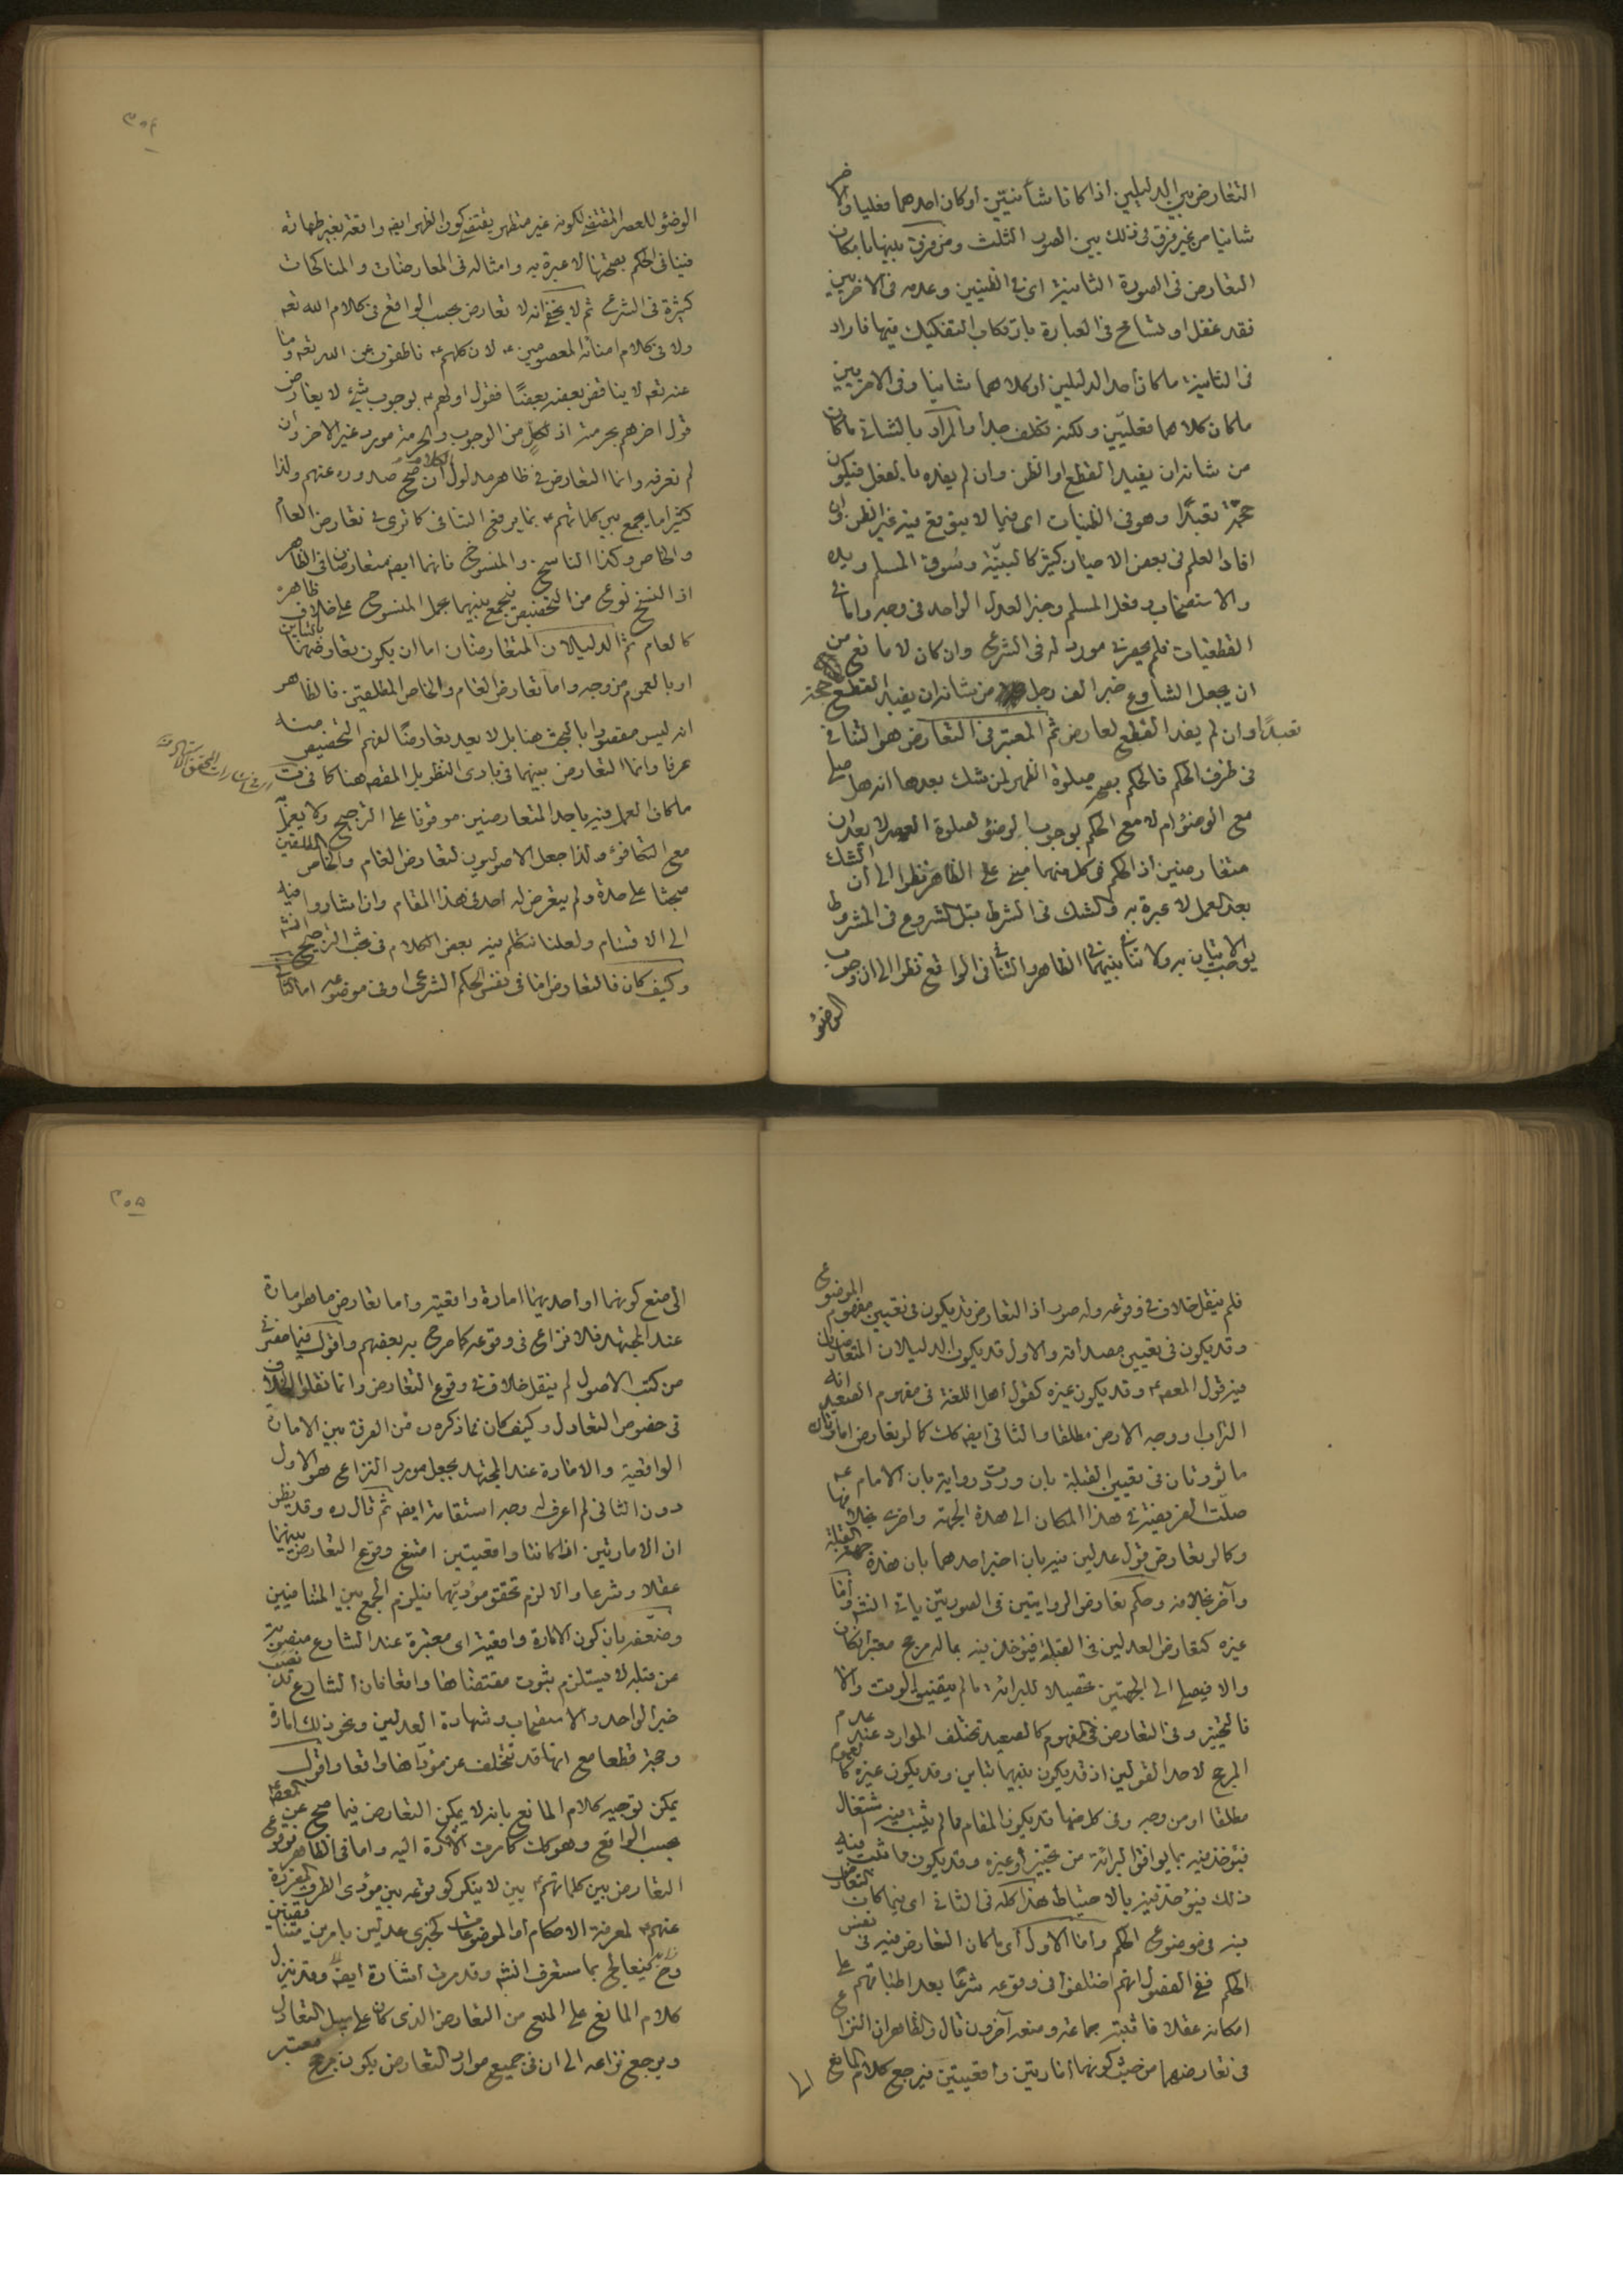 التعارض بين الدليلين اذا كانا شأنيّين او كان احدهما فعليا والاخر
شانيا من غير فرق فى ذلك بين الصور الثلث ومن فرق بينها بامكان
التعارض فى الصورة الثانية اى فى الظنيين وعدمه فى الاخريين
فقد غفل او تسامح فى العبارة بارتكاب التفكيك فيها فاراد
فى الثانية ما كان احد الدليلين او كلاهما شانيا وفى الاخريين
ما كان كلاهما فعليّين ولكنه تكلف جدا والمراد بالشانى ما كان
من شانه ان يفيد القطع او الظن وان لم يفده بالفعل فيكون
حجّة تعبدًا وهو فى الظنيات اى فيما لا يتوقع منه غير الظن وان
افاد العلم فى بعض الاحيان كثير كالبيّنة وسوق المسلم ويده
والاستصحاب وفعل المسلم وخبر العدل الواحد فى وجه واما فى
القطعيات فلم يحضرنى مورد له فى الشرع وان كان لا مانع من
ان يجعل الشارع خبر الف رجل من شانه ان يفيد القطع حجة
تعبدًا وان لم يفد القطع لعارض ثم المعتبر فى التعارض هو التنافى
فى ظرف الحكم فالحكم بصحة صلوة الظهر لمن شك بعدها انه هل صلى
مع الوضوء ام لا مع الحكم بوجوب الوضوء لصلوة العصر لا يعدان
متعارضين اذ الحكم فى كل منهما مبنى على الظاهر نظرا الى ان الشك
بعد العمل لا عبرة به والشك فى الشرط قبل الشروع فى المشروط
يوجب الاتيان به ولا تنافى بينهما فى الظاهر والتنافى فى الواقع نظرا الى ان وجوب
الوضوء
٣٠٤
الوضوء للعصر المقتضى لكونه غير متطهر يقتضى كون الظهر ايضه واقعة بغير طهارة
فينافى الحكم بصحتها لا عبرة به وامثاله فى المعارضات والمناكحات
كثيرة فى الشرع ثم لا يخفى انه لا تعارض بحسب الواقع فى كلام الله تعه
ولا فى كلام امنائه المعصومين ع لان كلهم ع ناطقون عن الله تعه وما
عنه تعه لا يناقض بعضه بعضًا فقول اولهم ع بوجوب شئ لا يعارض
قول اخرهم بحرمته اذ لكل من الوجوب والحرمة مورد غير الاخر وان
لم نعرفه وانما التعارض فى ظاهر مدلول الكلام ان صح صدوره عنهم ولذا
كثيرا ما يجمع بين كلماتهم ع بما يرفع التنافى كما ترى فى تعارض العام
والخاص وكذا الناسخ والمنسوخ فانهما ايضه متعارضان فى الظاهر
اذ النسخ نوع من التخصيص فيجمع بينهما بحمل المنسوخ على خلاف ظاهره
كالعام ثم الدليلان المتعارضان اما ان يكون تعارضهما بالتباين
او بالعموم من وجه واما تعارض العام والخاص المطلقين فالظاهر
انه ليس مقصودا بالبحث هنا بل لا يعد تعارضًا لفهم التخصيص منه
عرفا وانما التعارض بينهما فى بادى النظر بل المقصه هنا كما فى
ما كان العمل فيه باحد المتعارضين موقوفا على الترجيح ولا يعمل
مع التكافؤ ولذا جعل الاصوليون لتعارض العام والخاص المطلقين
مبحثا على حدة ولم يتعرض له احد فى هذا المقام وان اشاروا فيه
الى الاقسام ولعلنا نتكلم فيه بعض الكلام فى بحث الترجيح انشه
وكيف كان فالتعارض اما فى نفس الحكم الشرعى او فى موضوعه اما الثانى
فلم ينقل خلاف فى وقوعه وله صور اذ التعارض قد يكون فى تعيين مفهوم الموضوع
وقد يكون فى تعيين مصداقه والاول قد يكون الدليلان المتعارضان
فيه قول المعصه ع وقد يكون غيره كقول اهل اللغة فى مفهوم الصعيد انه
التراب او وجه الارض مطلقا والثانى ايضه كك كما لو تعارض امارتان
ماثورتان فى تعيين القبلة بان وردت رواية بان الامام ع
صلّت الفريضة فى هذا المكان الى هذه الجهة واخرى بخلافها
وكالو تعارض قول عدلين فيه بان اخبر احدهما بان هذه جهة القبلة
وآخر بخلافه وحكم تعارض الروايتين فى الصورتين ياتى انشه واما
غيره كتعارض العدلين فى القبلة فيؤخذ فيه بماله مرجح معتبر ان كان
والا فيصلى الى الجهتين تحصيلا للبرائة ما لم يتضيق الوقت والا
فالتخيير وفى التعارض فى المفهوم كالصعيد تختلف الموارد عند عدم
المرجح لاحد القولين اذ قد يكون بينهما تباين وقد يكون غيره كالعموم
مطلقا او من وجه وفى كل منهما قد يكون المقام مما لم يثبت فيه اشتغال
فيؤخذ فيه بما يوافق البرائة من تخيير او غيره وقد يكون مما ثبت فيه
ذلك فيؤخذ فيه بالاحتياط هذا كله فى الثانى اى فيما كان التعارض
فيه فى موضوع الحكم واما الاول اى ما كان التعارض فيه فى نفس
الحكم ففى الفصول انهم اختلفوا فى وقوعه شرعًا بعد اطباقهم على
امكانه عقلا فاثبته جماعة ومنعه آخرون قال والظاهر ان النزاع
فى تعارضهما من حيث كونهما امارتين واقعيتين فيرجع كلام المانع
الى
٣٠٥
الى منع كونهما او احديهما امارة واقعية واما تعارض ما هو امارة
عند المجتهد فلا نزاع فى وقوعه كما صرح به بعضهم واقول فيما عثرت
من كتب الاصول لم ينقل خلاف فى وقوع التعارض وانما نقلوا الخلاف
فى خصوص التعادل وكيف كان فما ذكره ره من الفرق بين الامارة
الواقعية والامارة عند المجتهد بجعل مورد النزاع هو الاول
دون الثانى لم اعرف له وجه استقامة ايضه ثم قال ره وقد يظن
ان الامارتين اذا كانتا واقعيتين امتنع وقوع التعارض بينهما
عقلا وشرعا والا لزم تحقق مؤديّهما فيلزم الجمع بين المتنافيين
وضعّفه بان كون الامارة واقعية اى معتبرة عند الشارع منصوبة
من قبله لا يستلزم ثبوت مقتضاها واقعا فان الشارع قد نصب
خبر الواحد والاستصحاب وشهادة العدلين ونحو ذلك امارة
وحجة قطعا مع انها قد تتخلف عن مؤداها واقعا واقول
يمكن توجيه كلام المانع بانه لا يمكن التعارض فيما صح عن المعصه ع
بحسب الواقع وهو كك كما مرت الاشارة اليه واما فى الظاهر فوقوع
التعارض بين كلماتهم ع بيّن لا ينكر كوقوعه بين مؤدى الطرق المقررة
عنهم ع لمعرفة الاحكام او الموضوعات كخبرى عدلين بامرين متنافيين
وح فيعالج بما ستعرف انشه وقد مرت اشارة ايضه وقد ينزل
كلام المانع على المنع من التعارض الذى كان على سبيل التعادل
ويرجع نزاعه الى ان فى جميع موارد التعارض يكون مرجح معتبر